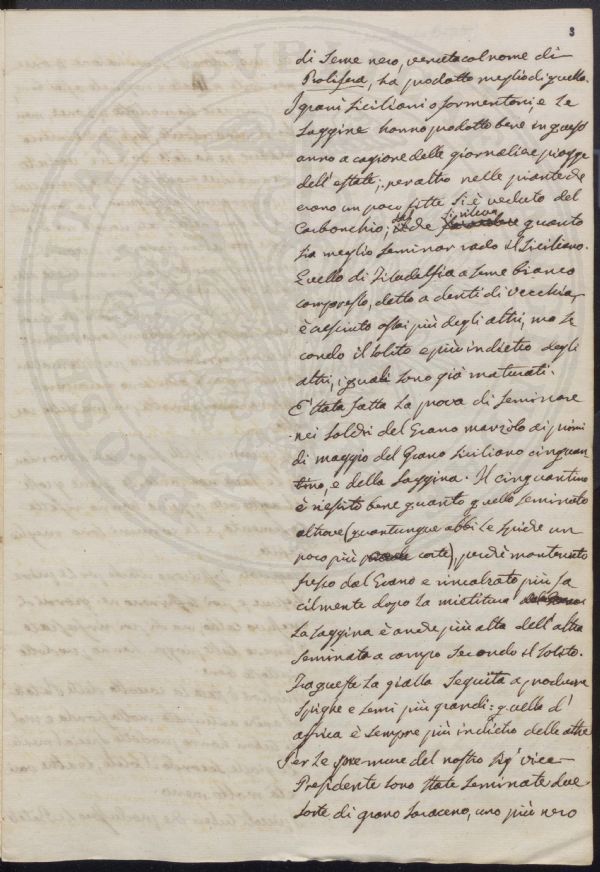 3
di seme nero, venuta col nome di
Prolifera, ha prodotto meglio di quella.
I grani siciliani o formentoni e le
saggine hanno prodotto bene in quest
anno a cagione delle giornaliere piogge
dell'estate; per altro nelle piante che
erano un poco fitte si è veduto del
Carbonchio; dal che si rileva quanto
sia meglio seminar rado il siciliano.
Quello di Filadelfia a seme bianco
compresso, detto a denti di vecchia,
è cresciuto assai più degli altri, ma se
condo il solito è più indietro degli
altri, i quali sono già maturati.
È stata fatta la prova di seminare
nei solchi del Grano marzolo ai primi
di maggio del Grano siciliano cinquan
tino, e della saggina. Il cinquantino
è riescito bene quanto quello seminato
altrove (quantunque abbi le spiche un
poco più corte), perché mantenuto
fresco dal Grano e rincalzato più fa
cilmente dopo la mietitura
La saggina è anche più alta dell'altra
seminata a campo secondo il solito.
Fra queste la gialla seguita a produrre
spighe e semi più grandi: quella d'
affrica è sempre più indietro delle altre
Per le premure del nostro Sig.r vice-
Presidente sono state seminate due
sorte di grano saraceno, uno più nero